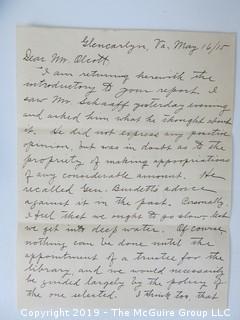 Glencarlyn, Va. May 16/15
Dear Mr. Olcott:
I am returning herewith the
introductory to your report. I
saw Mr. Schaaff yesterday evening
and asked him what he thought about
it. He did not express any positive
opinion, but was in doubt as to the
propriety of making appropriations
of any considerable amount. He
recalled Gen. Burdett's advice
against it in the past. Personally
I feel that we ought to go slow, lest
we get into deep water. Of course
nothing can be done until the
appointment of a trustee for the
library, and we would necessarily
be guided largely by the policy of
the one selected. I think too, that
Copyright 2019 - The McGuire Group LLC